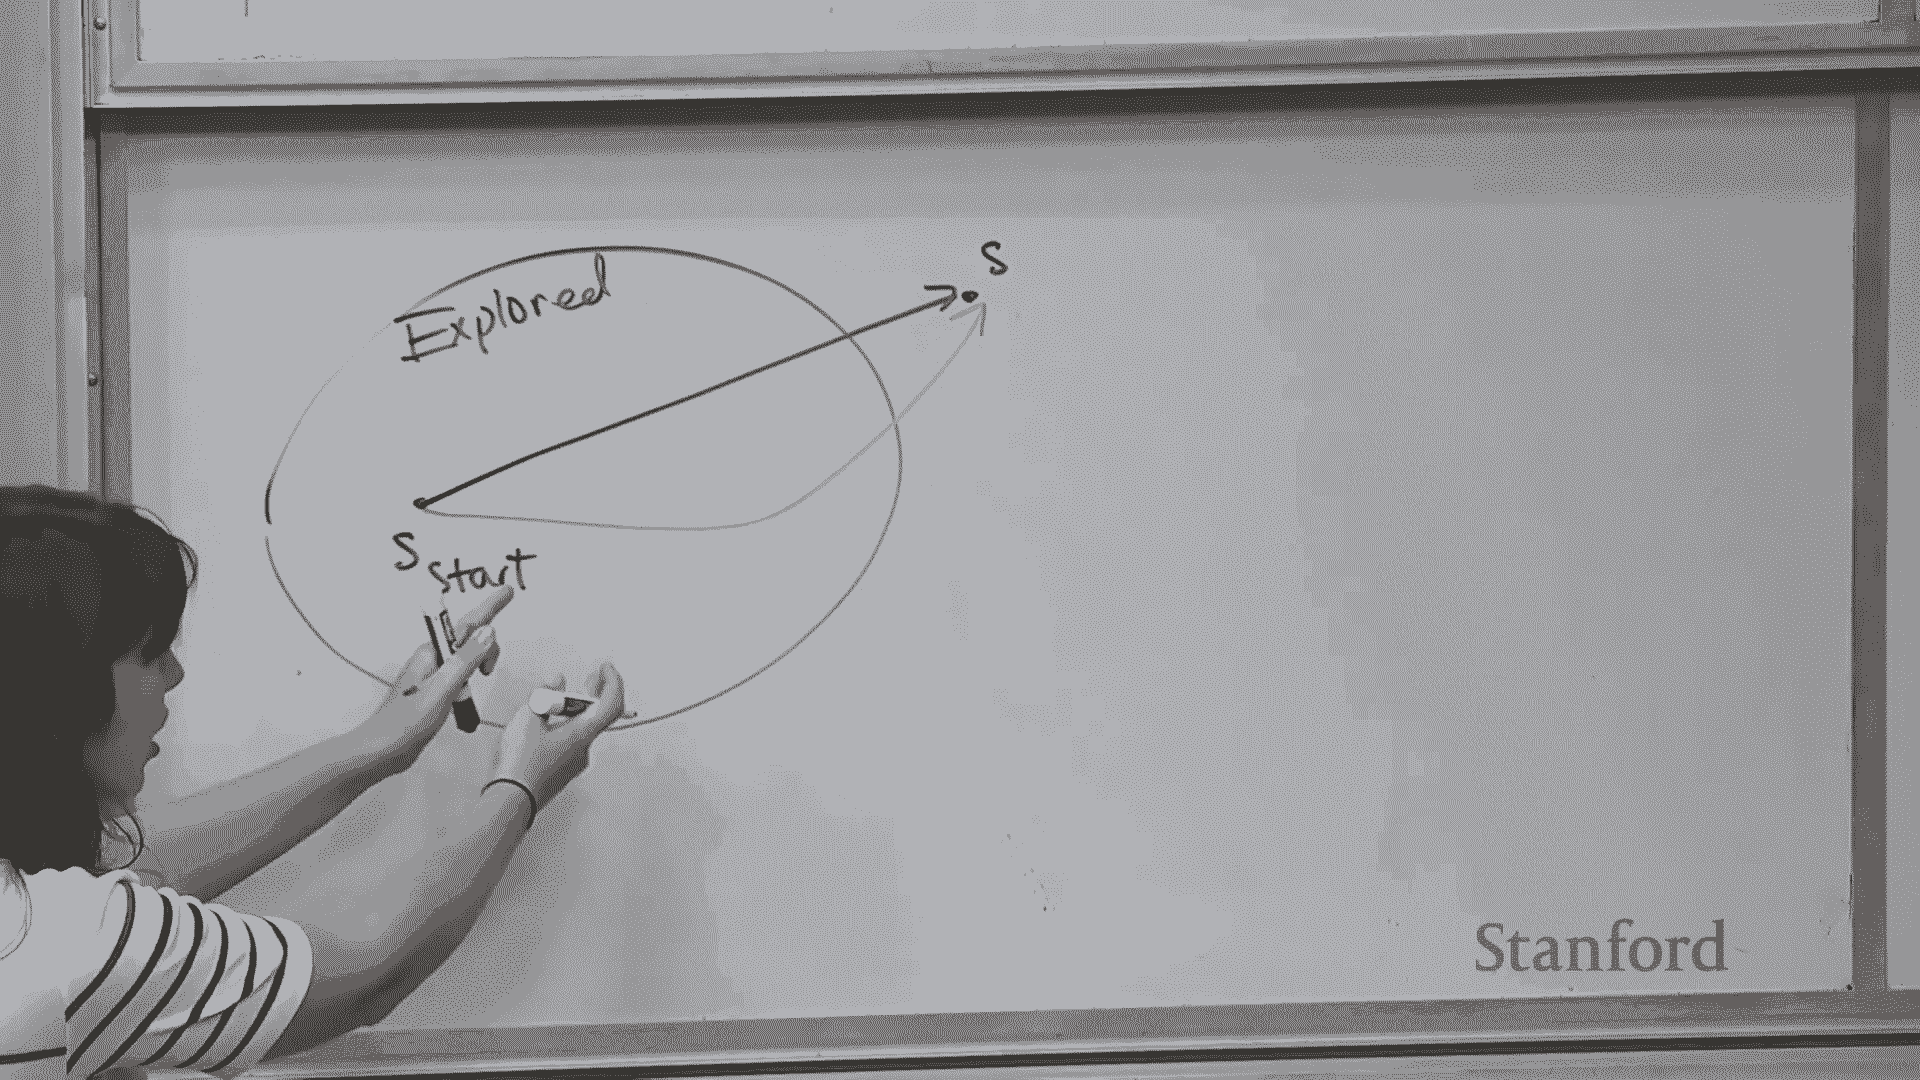 Explored
S
S start
Stanford